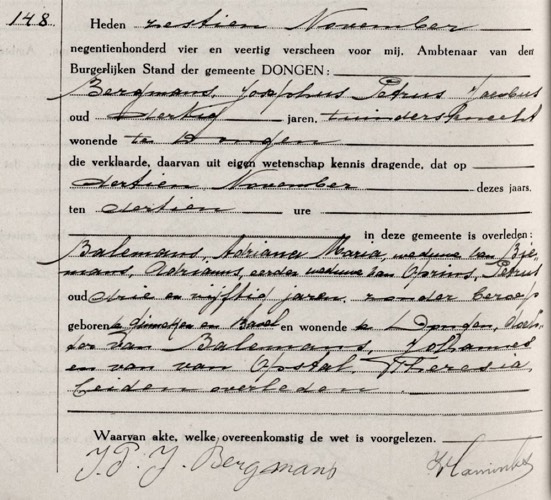 148
Heden zestien November
negentienhonderd vier en veertig verscheen voor mij, Ambtenaar van den
Burgerlijken Stand der gemeente DONGEN:
Bergmans, Josephus Petrus Jacobus
oud dertig jaren, tuindersknecht
wonende te Dongen
die verklaarde, daarvan uit eigen wetenschap kennis dragende, dat op
dertien November dezes jaars,
ten dertien ure
in deze gemeente is overleden:
Balemans, Adriana Maria, weduwe van
Adrianus, eerder weduwe van Petrus
oud drie en vijftig jaren, zonder beroep
geboren te Ginneken en Bavel en wonende te Dongen, doch-
ter van Balemans, Johannes
en van van Opstal, Theresia,
beiden overleden.
Waarvan akte, welke overeenkomstig de wet is voorgelezen.
J. P. J. Bergmans